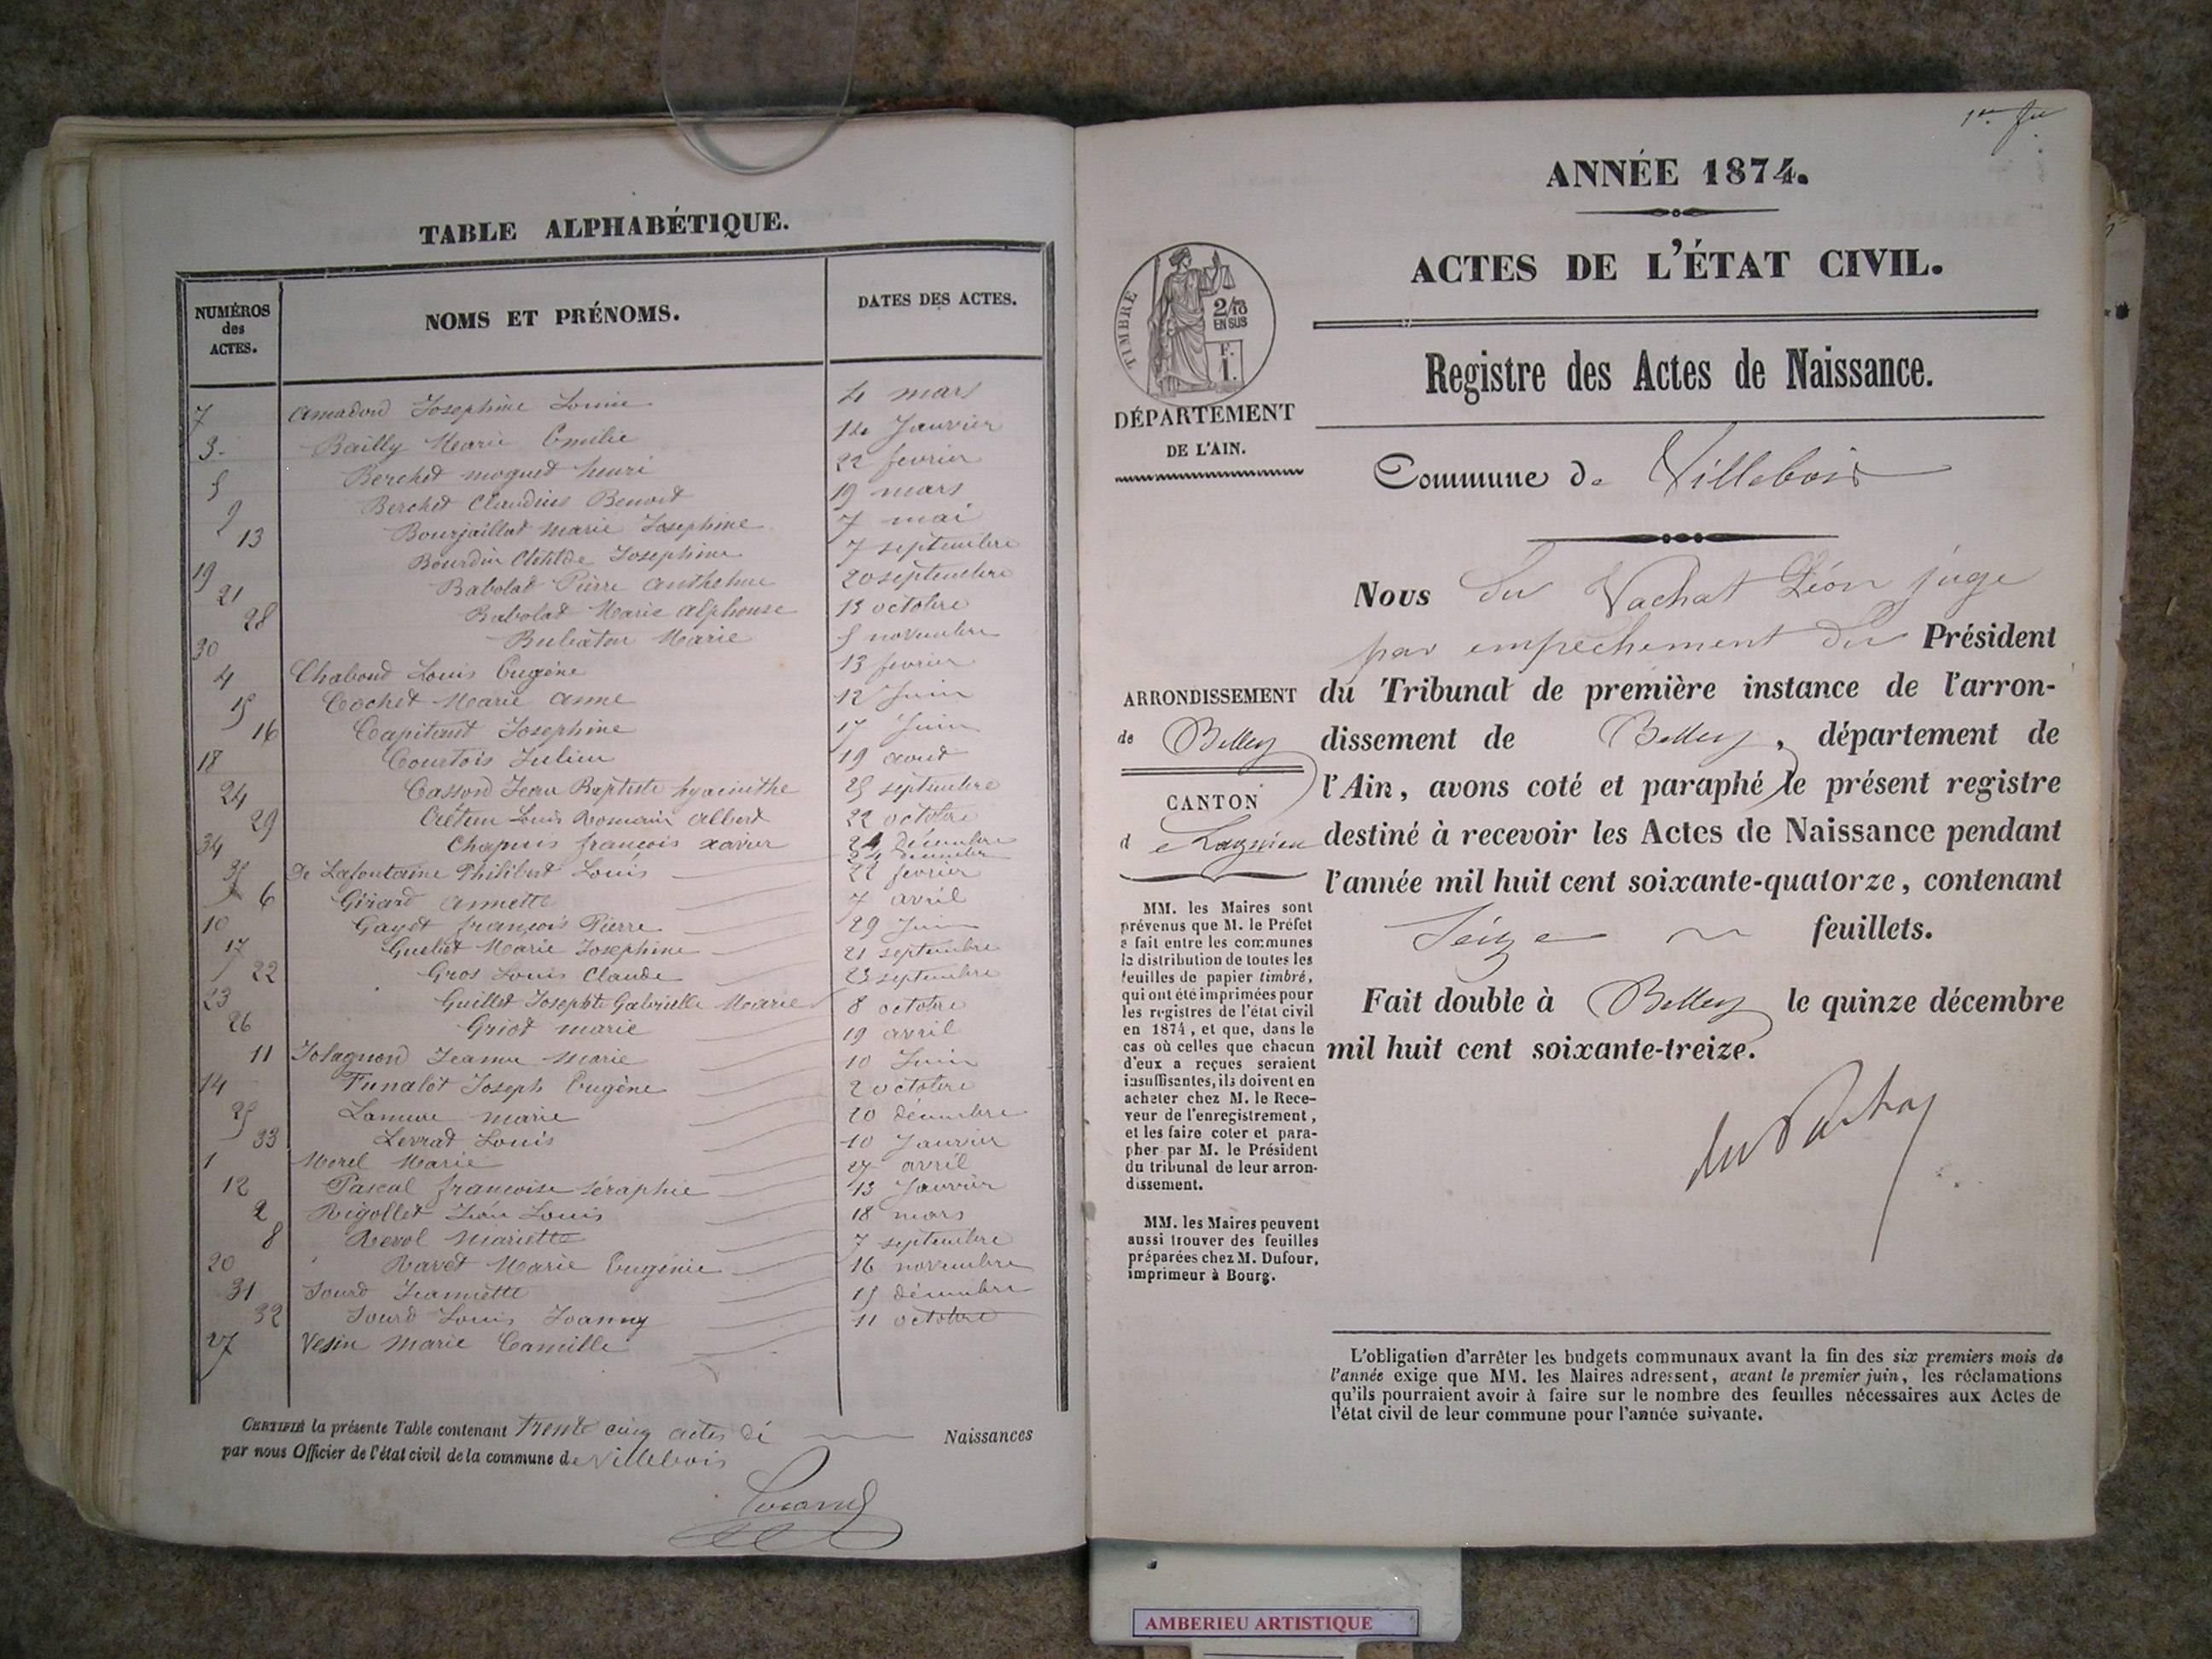 TABLE ALPHABÉTIQUE.
NUMÉROS des ACTES. NOMS ET PRÉNOMS. DATES DES ACTES.
7 Amadord Josephine Louise 4 mars
3 Bailly Marie Emilie 14 Janvier
5 Berchet moquet henri 22 fevrier
9 Berchet Claudius Benoit 19 mars
13 Bourjaillat Marie Josephine 7 mai
19 Bourdin Clotilde Josephine 7 septembre
21 Babolat Pierre Anthelme 20 septembre
28 Babolat Marie Alphonse 13 octobre
30 Marie 5 novembre
4 Chaboud Louis Eugène 13 fevrier
15 Cochet Marie Anne 12 Juin
16 Capitant Josephine 17 Juin
18 Courtois Julien 19 aout
24 Casson Jean Baptiste hyacinthe 25 septembre
29 Crétin Louis Romain Albert 22 octobre
34 Chapuis françois xavier 24 décembre
35 De Lafontaine Philibert Louis 24 décembre
6 Girard Annette 22 fevrier
10 Gayet françois Pierre 7 avril
17 Guelat Marie Josephine 29 Juin
22 Gros Louis Claude 21 septembre
23 Guillet Josephte Gabrielle Marie 23 septembre
26 Griot marie 8 octobre
11 Jolagnon Jeanne Marie 19 avril
14 Funalot Joseph Eugène 10 Juin
25 Lamure marie 2 octobre
33 Levrat Louis 20 décembre
1 Morel Marie 10 Janvier
12 Pascal françoise Séraphie 27 avril
2 Rigollet Léon Louis 13 Janvier
8 Revol Mariette 18 mars
20 Ravet Marie Eugénie 7 septembre
31 Sourd Jeannette 16 novembre
32 Sourd Louis Joanny 15 décembre
27 Vesin Marie Camille 11 octobre
CERTIFIÉ la présente Table contenant Trente cinq actes de Naissances
par nous Officier de l'état civil de la commune de Villebois
1er fet
ANNÉE 1874.
ACTES DE L'ÉTAT CIVIL.
TIMBRE
2/10
EN SUS
F.
1.
Registre des Actes de Naissance.
DÉPARTEMENT
DE L'AIN.
Commune de Villebois
Nous Du Vachat Léon juge
par empêchement du Président
du Tribunal de première instance de l'arron-
dissement de Belley, département de
l'Ain, avons coté et paraphé le présent registre
destiné à recevoir les Actes de Naissance pendant
l'année mil huit cent soixante-quatorze, contenant
Seize feuillets.
Fait double à Belley le quinze décembre
mil huit cent soixante-treize.
du Vachat
ARRONDISSEMENT
de Belley
CANTON
de Lagnieu
MM. les Maires sont
prévenus que M. le Préfet
a fait entre les communes
la distribution de toutes les
feuilles de papier timbré,
qui ont été imprimées pour
les registres de l'état civil
en 1874, et que, dans le
cas où celles que chacun
d'eux a reçues seraient
insuffisantes, ils doivent en
acheter chez M. le Rece-
veur de l'enregistrement,
et les faire coter et para-
pher par M. le Président
du tribunal de leur arron-
dissement.
MM. les Maires peuvent
aussi trouver des feuilles
préparées chez M. Dufour,
imprimeur à Bourg.
L'obligation d'arrêter les budgets communaux avant la fin des six premiers mois de
l'année exige que MM. les Maires adressent, avant le premier juin, les réclamations
qu'ils pourraient avoir à faire sur le nombre des feuilles nécessaires aux Actes de
l'état civil de leur commune pour l'année suivante.
AMBERIEU ARTISTIQUE